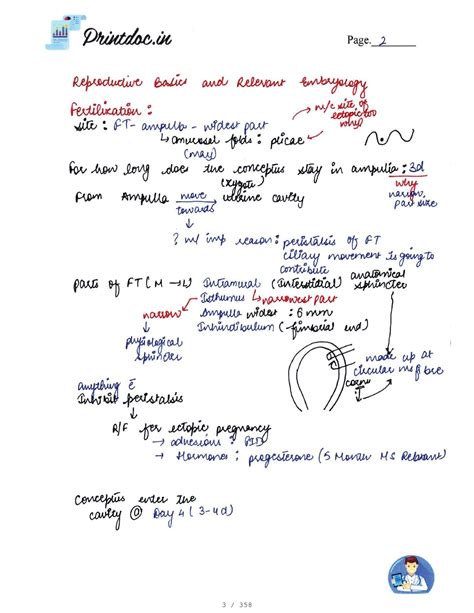 Printdoc.in
Page. 2
Reproductive Basics and Relevant Embryology
Fertilization :
m/c site of ectopic too
why?
site : FT - ampulla - widest part
mucosal folds : plicae
(max)
For how long does the conceptus stay in ampulla : 3d
(zygote)
why
narrow part size
From Ampulla move towards uterine cavity
? m/imp reason : peristalsis of FT
ciliary movement is going to contribute
Parts of FT (M → L) Intramural (Interstitial) anatomical sphincter
Isthumus → narrowest part
narrow
Ampulla widest : 6mm
Infundibulum (- fimbrial end)
physiological sphincter
made up of circular ms fibre
cornu
anything c̄
Inhibit peristalsis
R/F for ectopic pregnancy
→ adhesions : PID
→ Hormone : progesterone (S Mower MS Relaxant)
Conceptus enter the
cavity @ Day 4 (3-4d)
3 / 358